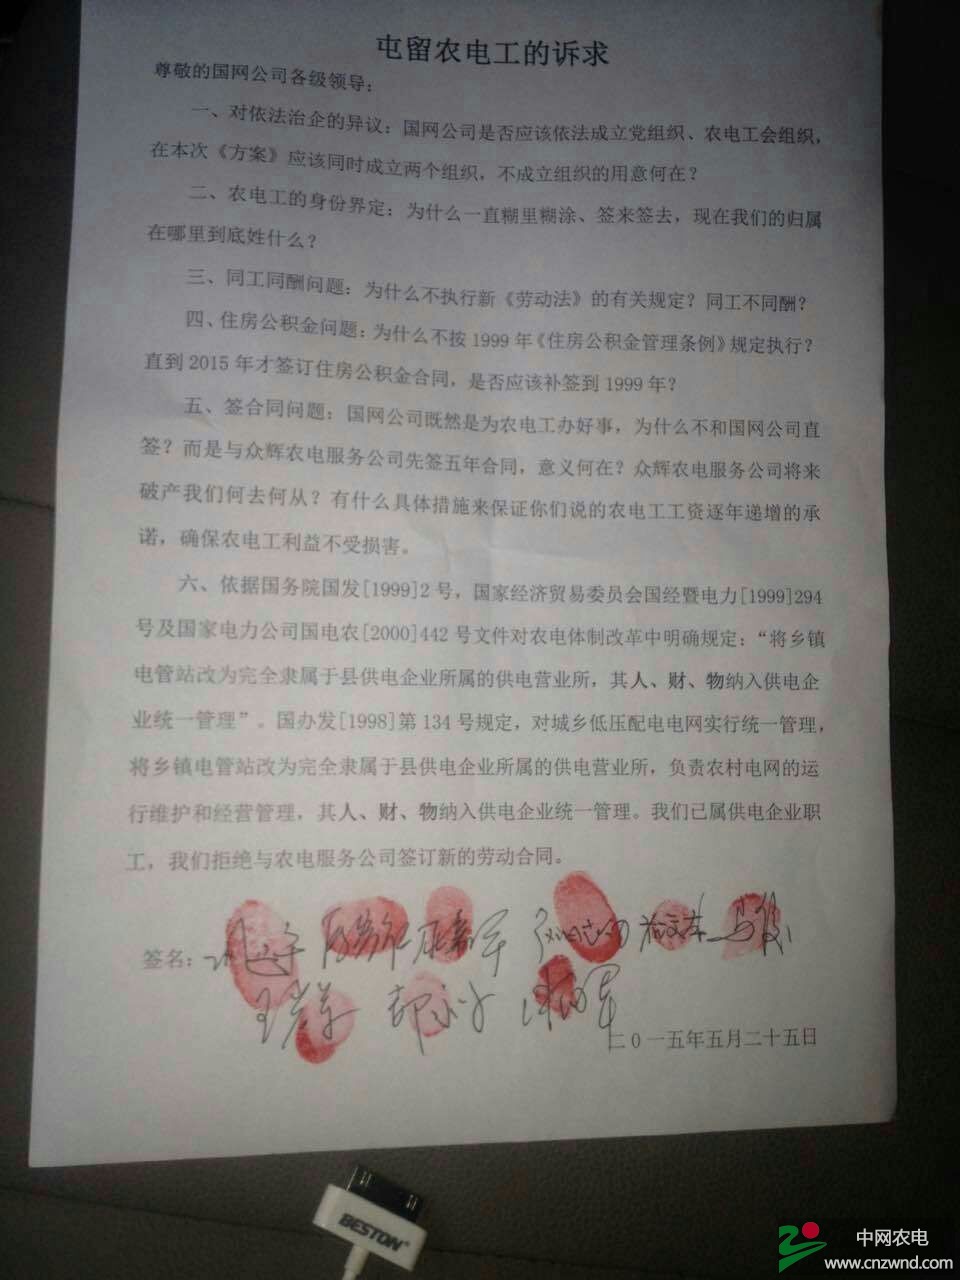 屯留农电工的诉求
尊敬的国网公司各级领导：
一、对依法治企的异议：国网公司是否应该依法成立党组织、农电工会组织，
在本次《方案》应该同时成立两个组织，不成立组织的用意何在？
二、农电工的身份界定：为什么一直糊里糊涂、签来签去，现在我们的归属
在哪里到底姓什么？
三、同工同酬问题：为什么不执行新《劳动法》的有关规定？同工不同酬？
四、住房公积金问题：为什么不按1999年《住房公积金管理条例》规定执行？
直到2015年才签订住房公积金合同，是否应该补签到1999年？
五、签合同问题：国网公司既然是为农电工办好事，为什么不和国网公司直
签？而是与众辉农电服务公司先签五年合同，意义何在？众辉农电服务公司将来
破产我们何去何从？有什么具体措施来保证你们说的农电工工资逐年递增的承
诺，确保农电工利益不受损害。
六、依据国务院国发[1999]2号，国家经济贸易委员会国经暨电力[1999]294
号及国家电力公司国电农[2000]442号文件对农电体制改革中明确规定：“将乡镇
电管站改为完全隶属于县供电企业所属的供电营业所，其人、财、物纳入供电企
业统一管理”。国办发[1998]第134号规定，对城乡低压配电电网实行统一管理，
将乡镇电管站改为完全隶属于县供电企业所属的供电营业所，负责农村电网的运
行维护和经营管理，其人、财、物纳入供电企业统一管理。我们已属供电企业职
工，我们拒绝与农电服务公司签订新的劳动合同。
签名：
二0一五年五月二十五日
BESTON
中网农电
www.cnzwnd.com